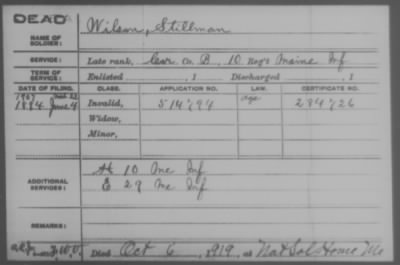 DEAD
NAME OF SOLDIER: Wilson, Stillman
SERVICE: Late rank, Corp. Co. B, 10 Reg't Maine Inf
TERM OF SERVICE: Enlisted , 1 Discharged , 1
DATE OF FILING. CLASS. APPLICATION NO. LAW. CERTIFICATE NO.
1907
1884 June 4 Invalid, 514794 Age 284726
Widow,
Minor,
ADDITIONAL SERVICES: H 10 Me Inf
E 29 Me Inf
REMARKS:
Died Oct 6, 1919, at Nat Sol Home Me